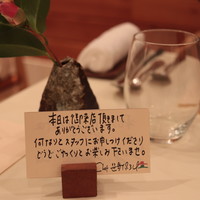 本日は御来店頂きまして
ありがとうございます。
何なりとスタッフにお申しつけくださり
どうぞごゆっくりお楽しみ下さいませ。